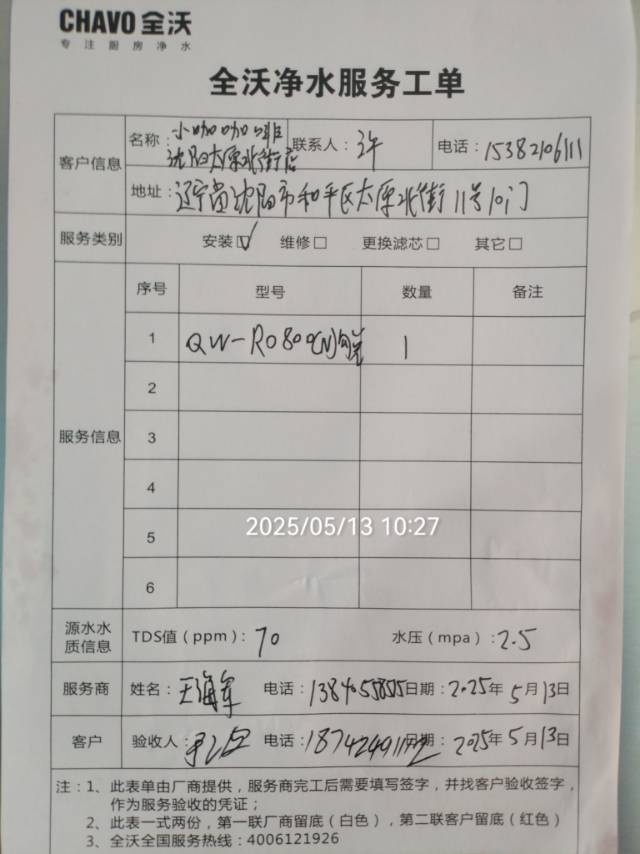 CHAVO 全沃
专注厨房净水
全沃净水服务工单
客户信息
名称：小咖咖啡
沈阳太原北街店
联系人：许
电话：15382106111
地址：辽宁省沈阳市和平区太原北街11号10门
服务类别 安装☑ 维修□ 更换滤芯□ 其它□
服务信息
序号 型号 数量 备注
1 QW-RO800(N) 1
2
3
4
5
6
2025/05/13 10:27
源水水
质信息
TDS值（ppm）：70 水压（mpa）：2.5
服务商 姓名：王海军 电话： 日期：2025年5月13日
客户 验收人： 电话： 日期：2025年5月13日
注：1、此表单由厂商提供，服务商完工后需要填写签字，并找客户验收签字，
作为服务验收的凭证；
2、此表一式两份，第一联厂商留底（白色），第二联客户留底（红色）
3、全沃全国服务热线：4006121926